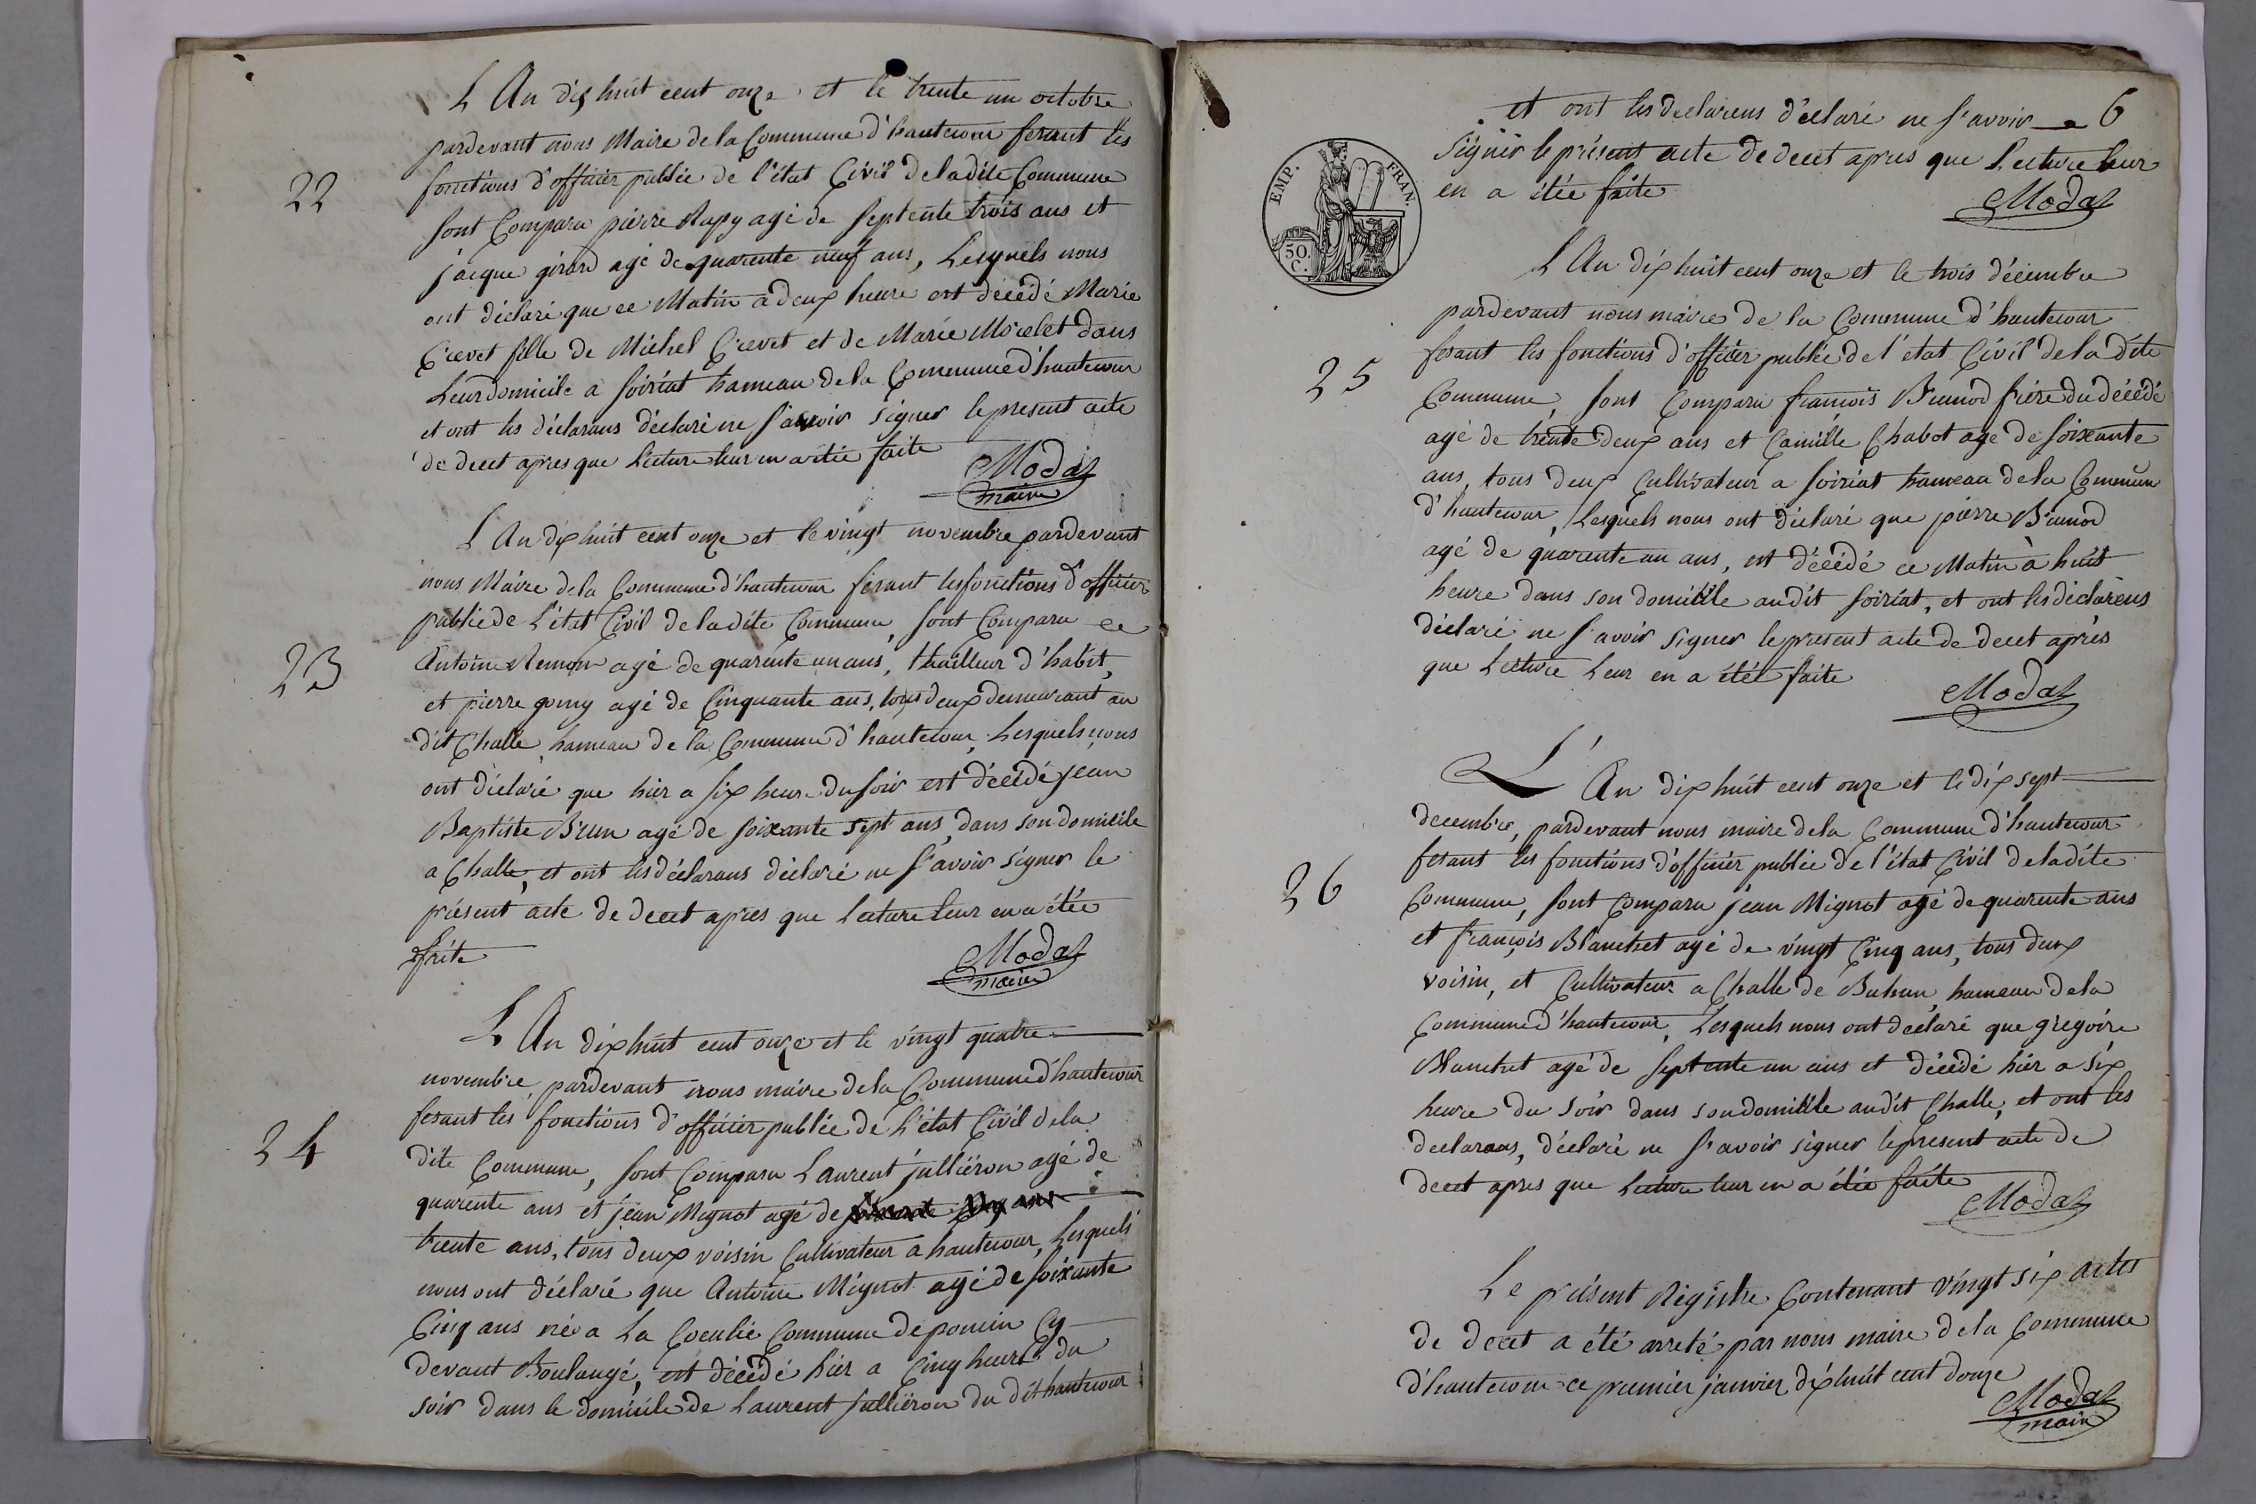 L'An dix huit cent onze et le trente un octobre
pardevant nous Maire de la Commune d'hautecour fesant les
22
fonctions d'officier publie de l'état Civil de ladite Commune
sont Comparu pierre Rapy agé de septente trois ans et
jacque girard agé de quarente neuf ans, Lesquels nous
ont déclaré que ce Matin a deux heure est décédé Marie
Crevet fille de Michel Crevet et de Marie Morelet dans
Leur domicile a soiriat hameau de la Commune d'hautecour
et ont les déclarans déclaré ne s'avoir signer le present acte
de decet apres que Lecture leur en a étée faite
Modas
maire
L'An dix huit cent onze et le vingt novembre pardevant
nous Maire de la Commune d'hautecour fesant les fonctions d'officier
publie de L'état Civil de ladite Commune, sont Comparu ce
23
Antoine agé de quarente un ans, thailleur d'habit,
et pierre gomy agé de Cinquante ans, tous deux demeurant au
dit Challe, hameau de la Commune d'hautecour, Lesquels nous
ont déclaré que hier a six heure du soir est décédé jean
Baptiste Brun agé de soixante sept ans, dans son domicile
a Challe, et ont les déclarans déclaré ne s'avoir signer le
présent acte de decet apres que Lecture leur en a étée
faite
Modas
maire
L'An dix huit cent onze et le vingt quatre
novembre, pardevant nous maire de la Commune d'hautecour
fesant les fonctions d'officier publie de L'état Civil de la
24
dite Commune, sont Comparu Laurent jullieron agé de
quarente ans et jean Mignot agé de
trente ans, tous deux voisin Cultivateur a hautecour, Lesquels
nous ont déclaré que Antoine Mignot agé de soixante
Cinq ans né a La Commune de poncin Cy
devant Boulangé, est décédé hier a Cinq heure du
soir dans le domicile de Laurent jullieron du dit hautecour
et ont les declarens déclaré ne s'avoir 6
signér le présent acte de decet apres que Lecture leur
en a étée faite
Modas
EMP. FRAN.
50.
C.
L'An dix huit cent onze et le trois décembre
pardevant nous maire de la Commune d'hautecour
fesant les fonctions d'officier publie de l'état Civil de la dite
25
Commune, sont Comparu françois Brunod frére du décédé
agé de trente deux ans et Camille Chabot agé de soixante
ans, tous deux Cultivateur a soiriat hameau de la Commune
d'hautecour, Lesquels nous ont déclaré que pierre Brunod
agé de quarente un ans, est décédé ce Matin à huit
heure dans son domicile audit soiriat, et ont les déclarens
déclaré ne s'avoir signer le present acte de decet après
que Lecture Leur en a étée faite
Modas
L'An dix huit cent onze et le dix sept
decembre, pardevant nous maire de la Commune d'hautecour
fesant les fonctions d'officier publie de l'état Civil de ladite
26
Commune, sont Comparu jean Mignot agé de quarente ans
et françois Blanchet agé de vingt Cinq ans, tous deux
voisin, et Cultivateur a Challe de Bohan, hameau de la
Commune d'hautecour, Lesquels nous ont déclaré que gregoire
Blanchet agé de septente un ans et décédé hier a six
heure du soir dans son domicile audit Challe, et ont les
declarans, déclaré ne s'avoir signer le present acte de
decet apres que Lecture leur en a étée faite
Modas
Le présent Régistre Contenant vingt six actes
de decet a été arreté par nous maire de la Commune
d'hautecour ce premier janvier dix huit cent douze
Modas
maire